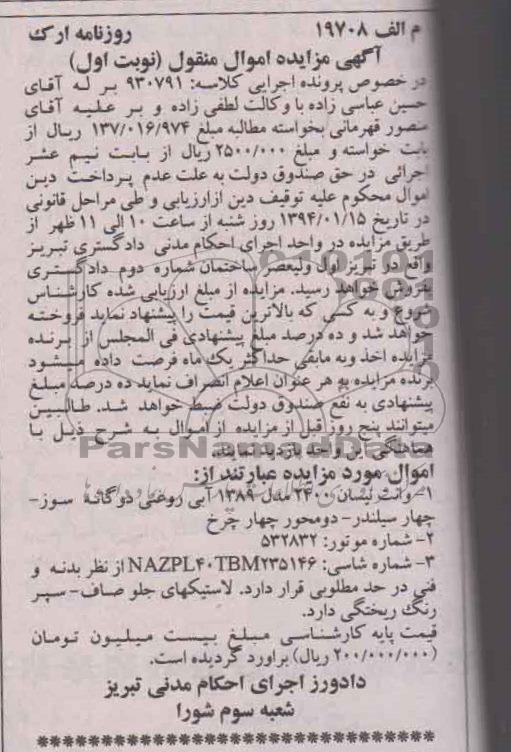 م الف ۱۹۷۰۸ روزنامه ارک
آگهی مزایده اموال منقول (نوبت اول)
در خصوص پرونده اجرایی کلاسه: ۹۳۰۷۹۱ بر له آقای
حسین عباسی زاده با وکالت لطفی زاده و بر علیه آقای
منصور قهرمانی بخواسته مطالبه مبلغ ۱۳۷/۰۱۶/۹۷۴ ریال از
بابت خواسته و مبلغ ۲۵۰۰/۰۰۰ ریال از بابت نیم عشر
اجرائی در حق صندوق دولت به علت عدم پرداخت دین
اموال محکوم علیه توقیف دین ازارزیابی و طی مراحل قانونی
در تاریخ ۱۳۹۴/۰۱/۱۵ روز شنبه از ساعت ۱۰ الی ۱۱ ظهر از
طریق مزایده در واحد اجرای احکام مدنی دادگستری تبریز
واقع در تبریز اول ولیعصر ساختمان شماره دوم دادگستری
بفروش خواهد رسید. مزایده از مبلغ ارزیابی شده کارشناس
شروع و به کسی که بالاترین قیمت را پیشنهاد نماید فروخته
خواهد شد و ده درصد مبلغ پیشنهادی فی المجلس از برنده
مزایده اخذ وبه مابقی حداکثر یک ماه فرصت داده میشود
برنده مزایده به هر عنوان اعلام انصراف نماید ده درصد مبلغ
پیشنهادی به نفع صندوق دولت ضبط خواهد شد. طالبین
میتوانند پنج روز قبل از مزایده از اموال به شرح ذیل با
هماهنگی این واحد بازدید نمایند.
ParsNamadData
اموال مورد مزایده عبارتند از:
۱- وانت نیسان ۲۴۰۰ مدل ۱۳۸۹ آبی روغنی دوگانه سوز-
چهار سیلندر- دومحور چهار چرخ
۲- شماره موتور: ۵۳۲۸۳۲
۳- شماره شاسی: NAZPL۴۰TBM۲۳۵۱۴۶ از نظر بدنه و
فنی در حد مطلوبی قرار دارد. لاستیکهای جلو صاف- سپر
رنگ ریختگی دارد.
قیمت پایه کارشناسی مبلغ بیست میلیون تومان
(۲۰۰/۰۰۰/۰۰۰ ریال) براورد گردیده است.
دادورز اجرای احکام مدنی تبریز
شعبه سوم شورا